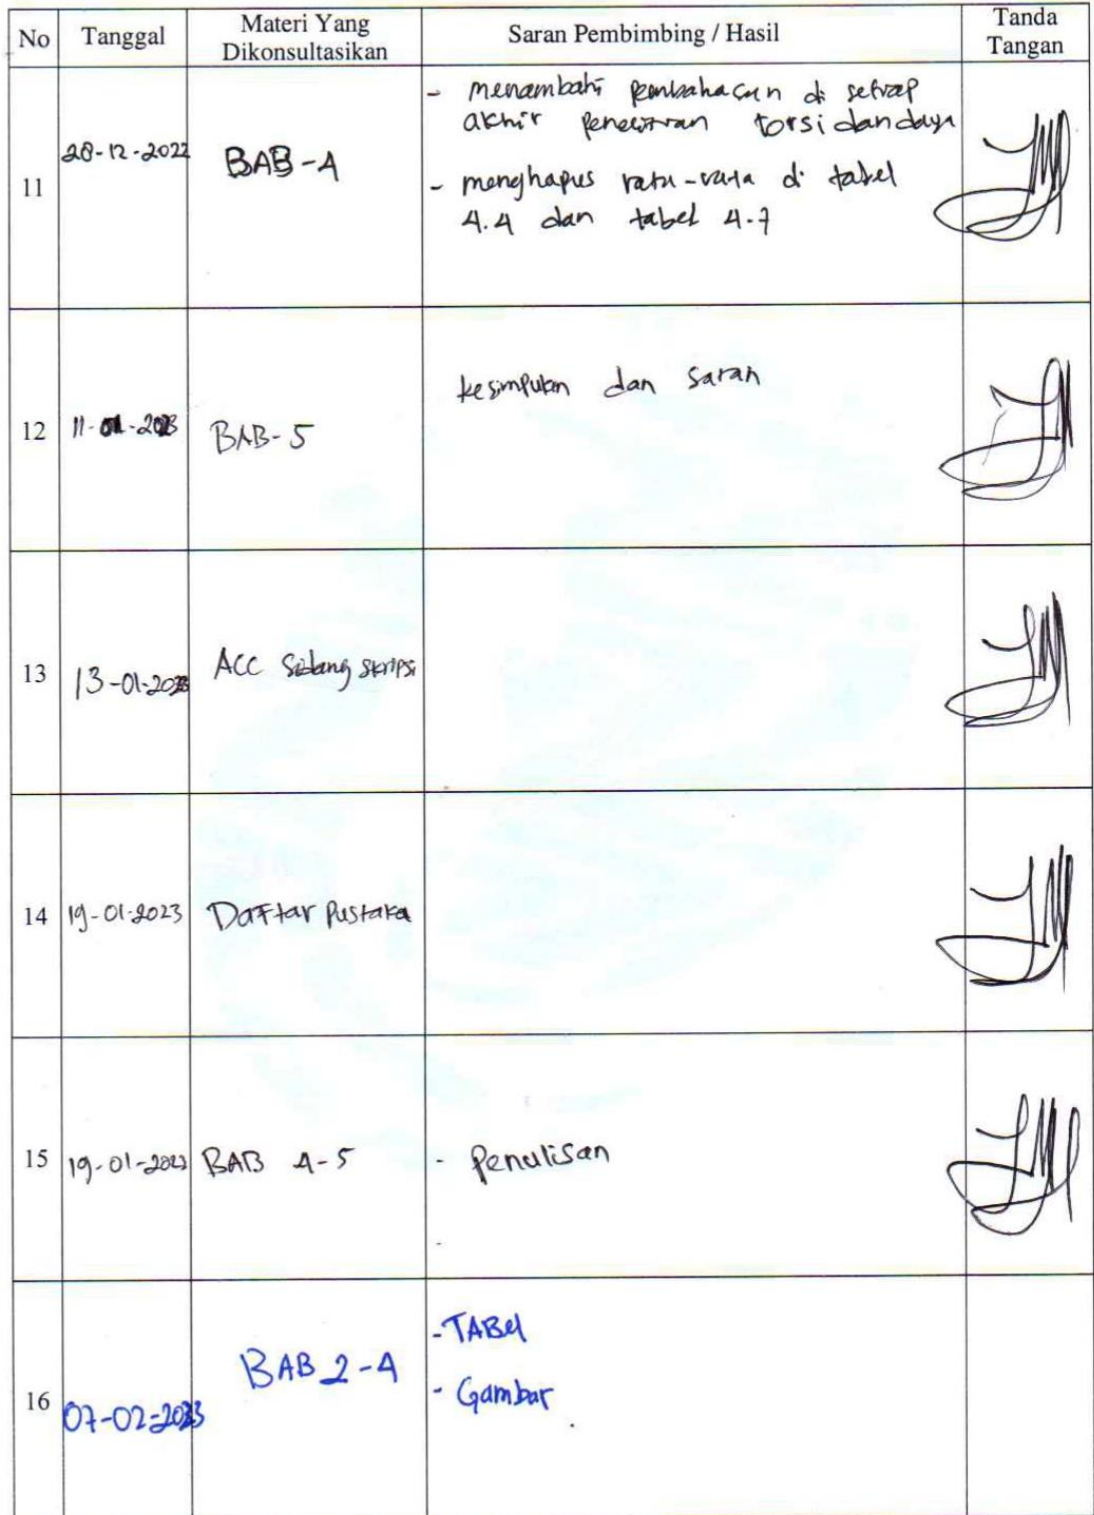 No Tanggal Materi Yang Dikonsultasikan Saran Pembimbing / Hasil Tanda Tangan
11 28-12-2022 BAB-4
- menambahi pembahasan di setiap
akhir penelitian torsi dan daya
- menghapus rata-rata di tabel
4.4 dan tabel 4.7
12 11-01-2023 BAB-5 kesimpulan dan saran
13 13-01-2023 ACC Sidang skripsi
14 19-01-2023 Daftar Pustaka
15 19-01-2023 BAB 4-5 - Penulisan
16 07-02-2023 BAB 2-4
- TABel
- Gambar